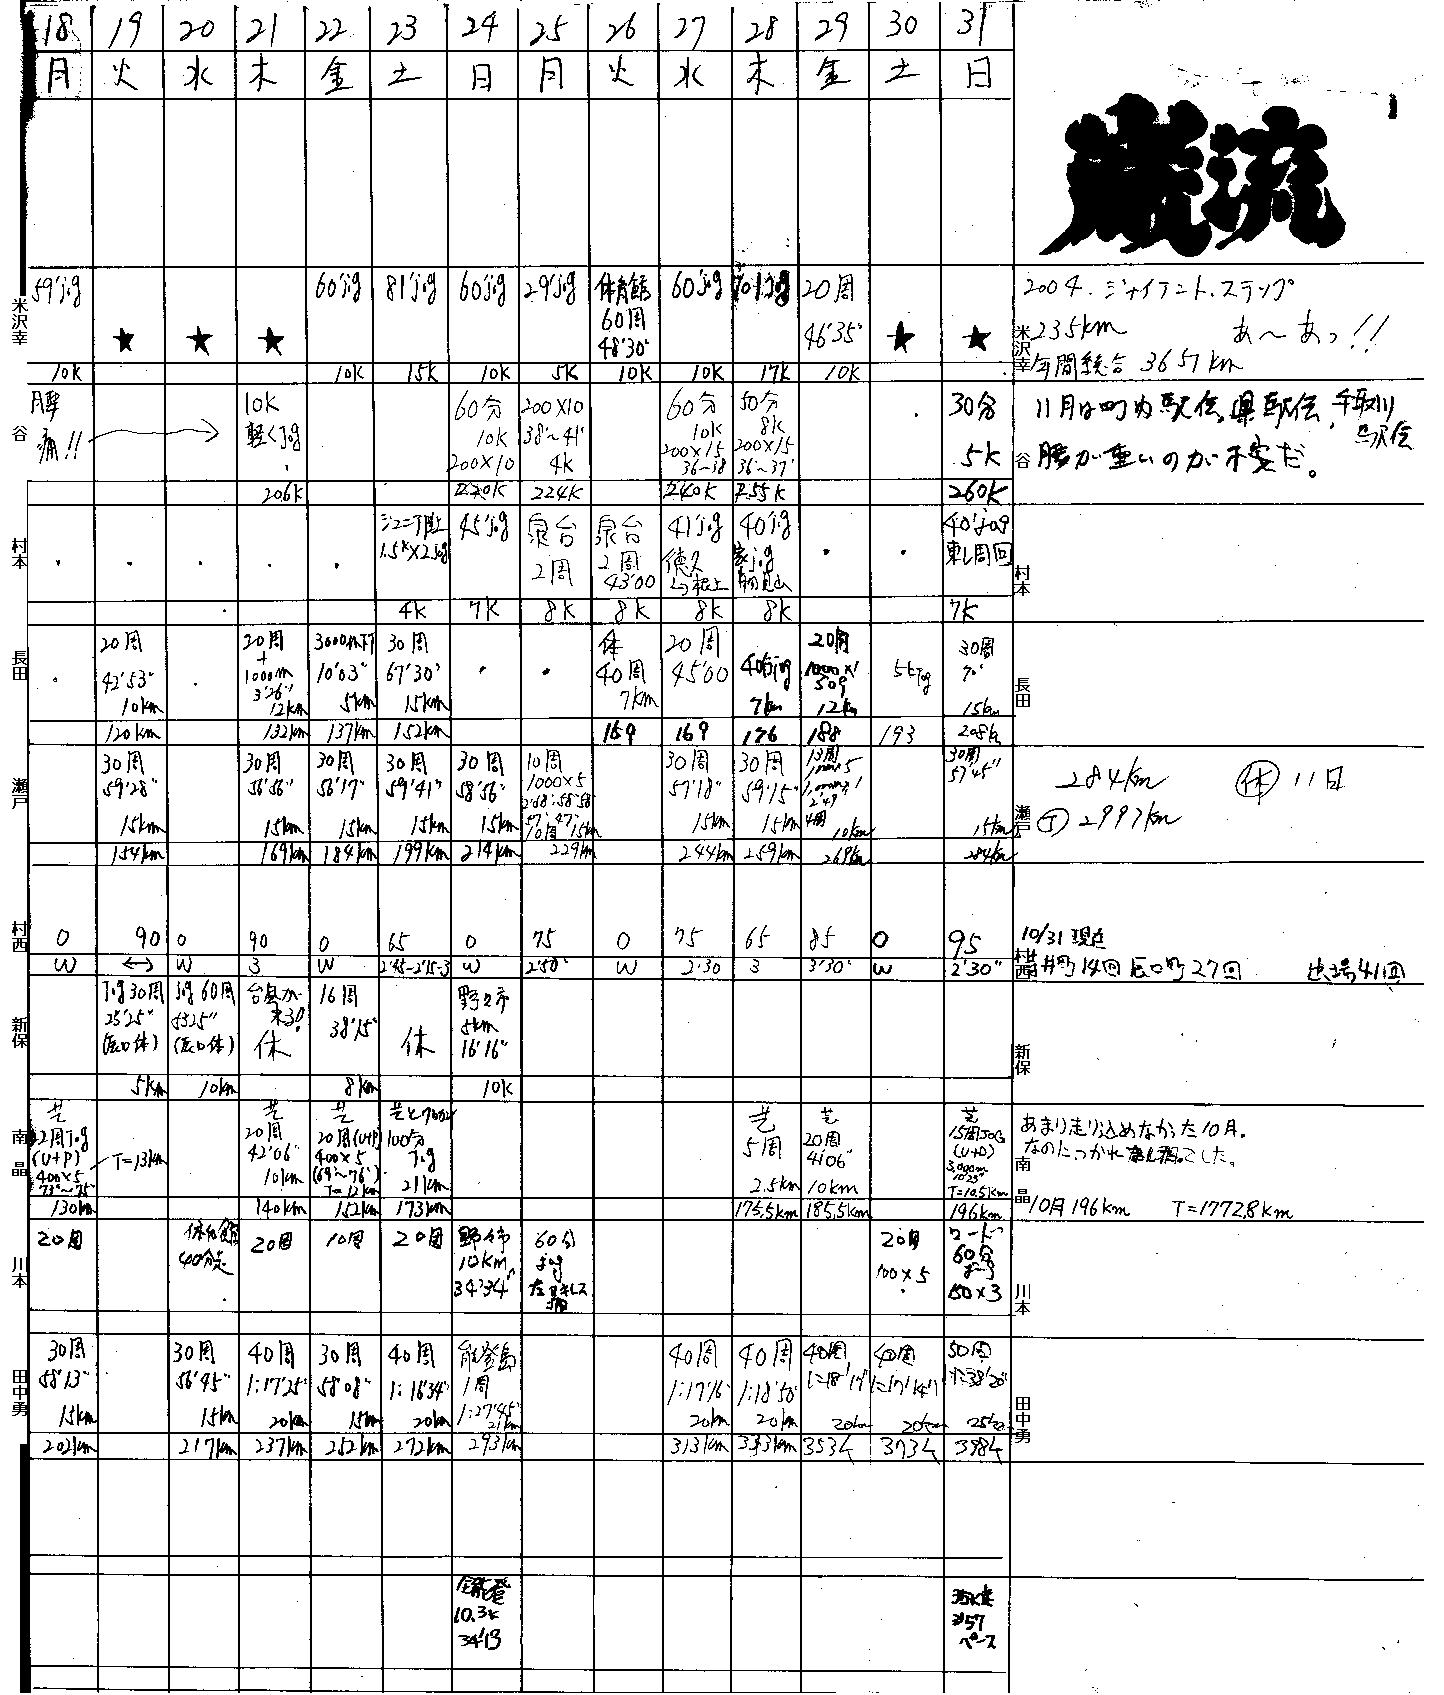 18 19 20 21 22 23 24 25 26 27 28 29 30 31
月 火 水 木 金 土 日 月 火 水 木 金 土 日
巌流
米沢幸
59'jog 60'jog 81'jog 60'jog 29'jog 体育館 60'jog 20周
60周
48'30" 46'35"
★ ★ ★ ★ ★
10K 10K 15K 10K 5K 10K 10K 17K 10K
米沢幸
2004.ジャイアント.ステップ
235km あ〜あっ!!
年間総合 3657km
谷
腰 10K 60分 200×10 60分 50分 30分
痛!! 軽くjog 10K 38"~41" 10K 8K
200×10 4K 200×15 200×15 5K
36~38 36~37"
206K 220K 224K 240K 255K 260K
谷
11月は町内駅伝,県駅伝,手取川
駅伝
腰が重いのが不安だ。
村本
45'jog 泉台 泉台 41'jog 40'jog 40'jog
1.5K×2jog 2周 2周 徳久
43'00
4K 7K 8K 8K 8K 8K 7K
村本
長田
20周 20周 3000mTT 30周 体 20周 20周 30周
42'53" + 10'03" 67'30" 40周 45'00 40分jog 5kjog
10km 1000m 5km 15km 7km 7km 12km 15km
3'26"
12km
120km 132km 137km 152km 159 169 176 188 193 208k
長田
瀬戸
30周 30周 30周 30周 30周 10周 30周 30周 13周 30周
59'28" 56'56" 56'17" 59'41" 58'56" 1000×5 57'18" 59'15" 57'45"
15km 15km 15km 15km 15km 10周 15km 15km 15km 4周 10km 15km
154km 169km 184km 199km 214km 229km 244km 259km 269km 284km
瀬戸
284km 休 11日
T 2997km
村西
0 90 0 90 0 65 0 75 0 75 65 85 0 95
W ↔ W 3 W 2'45-2'15-3 W 2'50" W 2'30 3 3'30" W 2'30"
村西
10/31 現在
14回 辰口町 27回 出場41回
新保
jog30周 jog60周 台風が 16周 野々市
25'25" 来る! 38'15" 休 5km
(辰口体) (辰口体) 休 16'16"
5km 10km 8km 10K
新保
南 晶
芝 芝 芝 芝 芝 芝
22周jog 20周 20周(U+P) 100分 5周 20周 15周JOG
(U+P) T=13km 42'06" 400×5 jog 41'06" (U+D)
400×5 10km (69"~76") 21km 2.5km 10km 3,000m
73"~75" T=12km 10'25"
T=10.5km
130km 140km 152km 173km 175.5km 185.5km 196km
南 晶
あまり走り込めなかった10月。
なのにつかれ でした。
10月 196km T=1772.8km
川本
20周 体育館 20周 10周 20周 野々市 60分 20周 ロード
40分走 10km jog 100×5 60分
34'34" 150×3
川本
田中勇
30周 30周 40周 30周 40周 能登島 40周 40周 40周 40周 50周
58'13" 56'45" 1:17'25" 58'08" 1:16'34" 1周 1:17'16" 1:18'50" 1:18'17" 1:17'14" 1:38'20"
1:27'45"
15km 15km 20km 15km 20km 21km 20km 20km 20km 20km 25km
202km 217km 237km 252km 272km 293km 313km 333km 353k 373k 398k
田中勇
10.3K
34'13
3'57
ペース